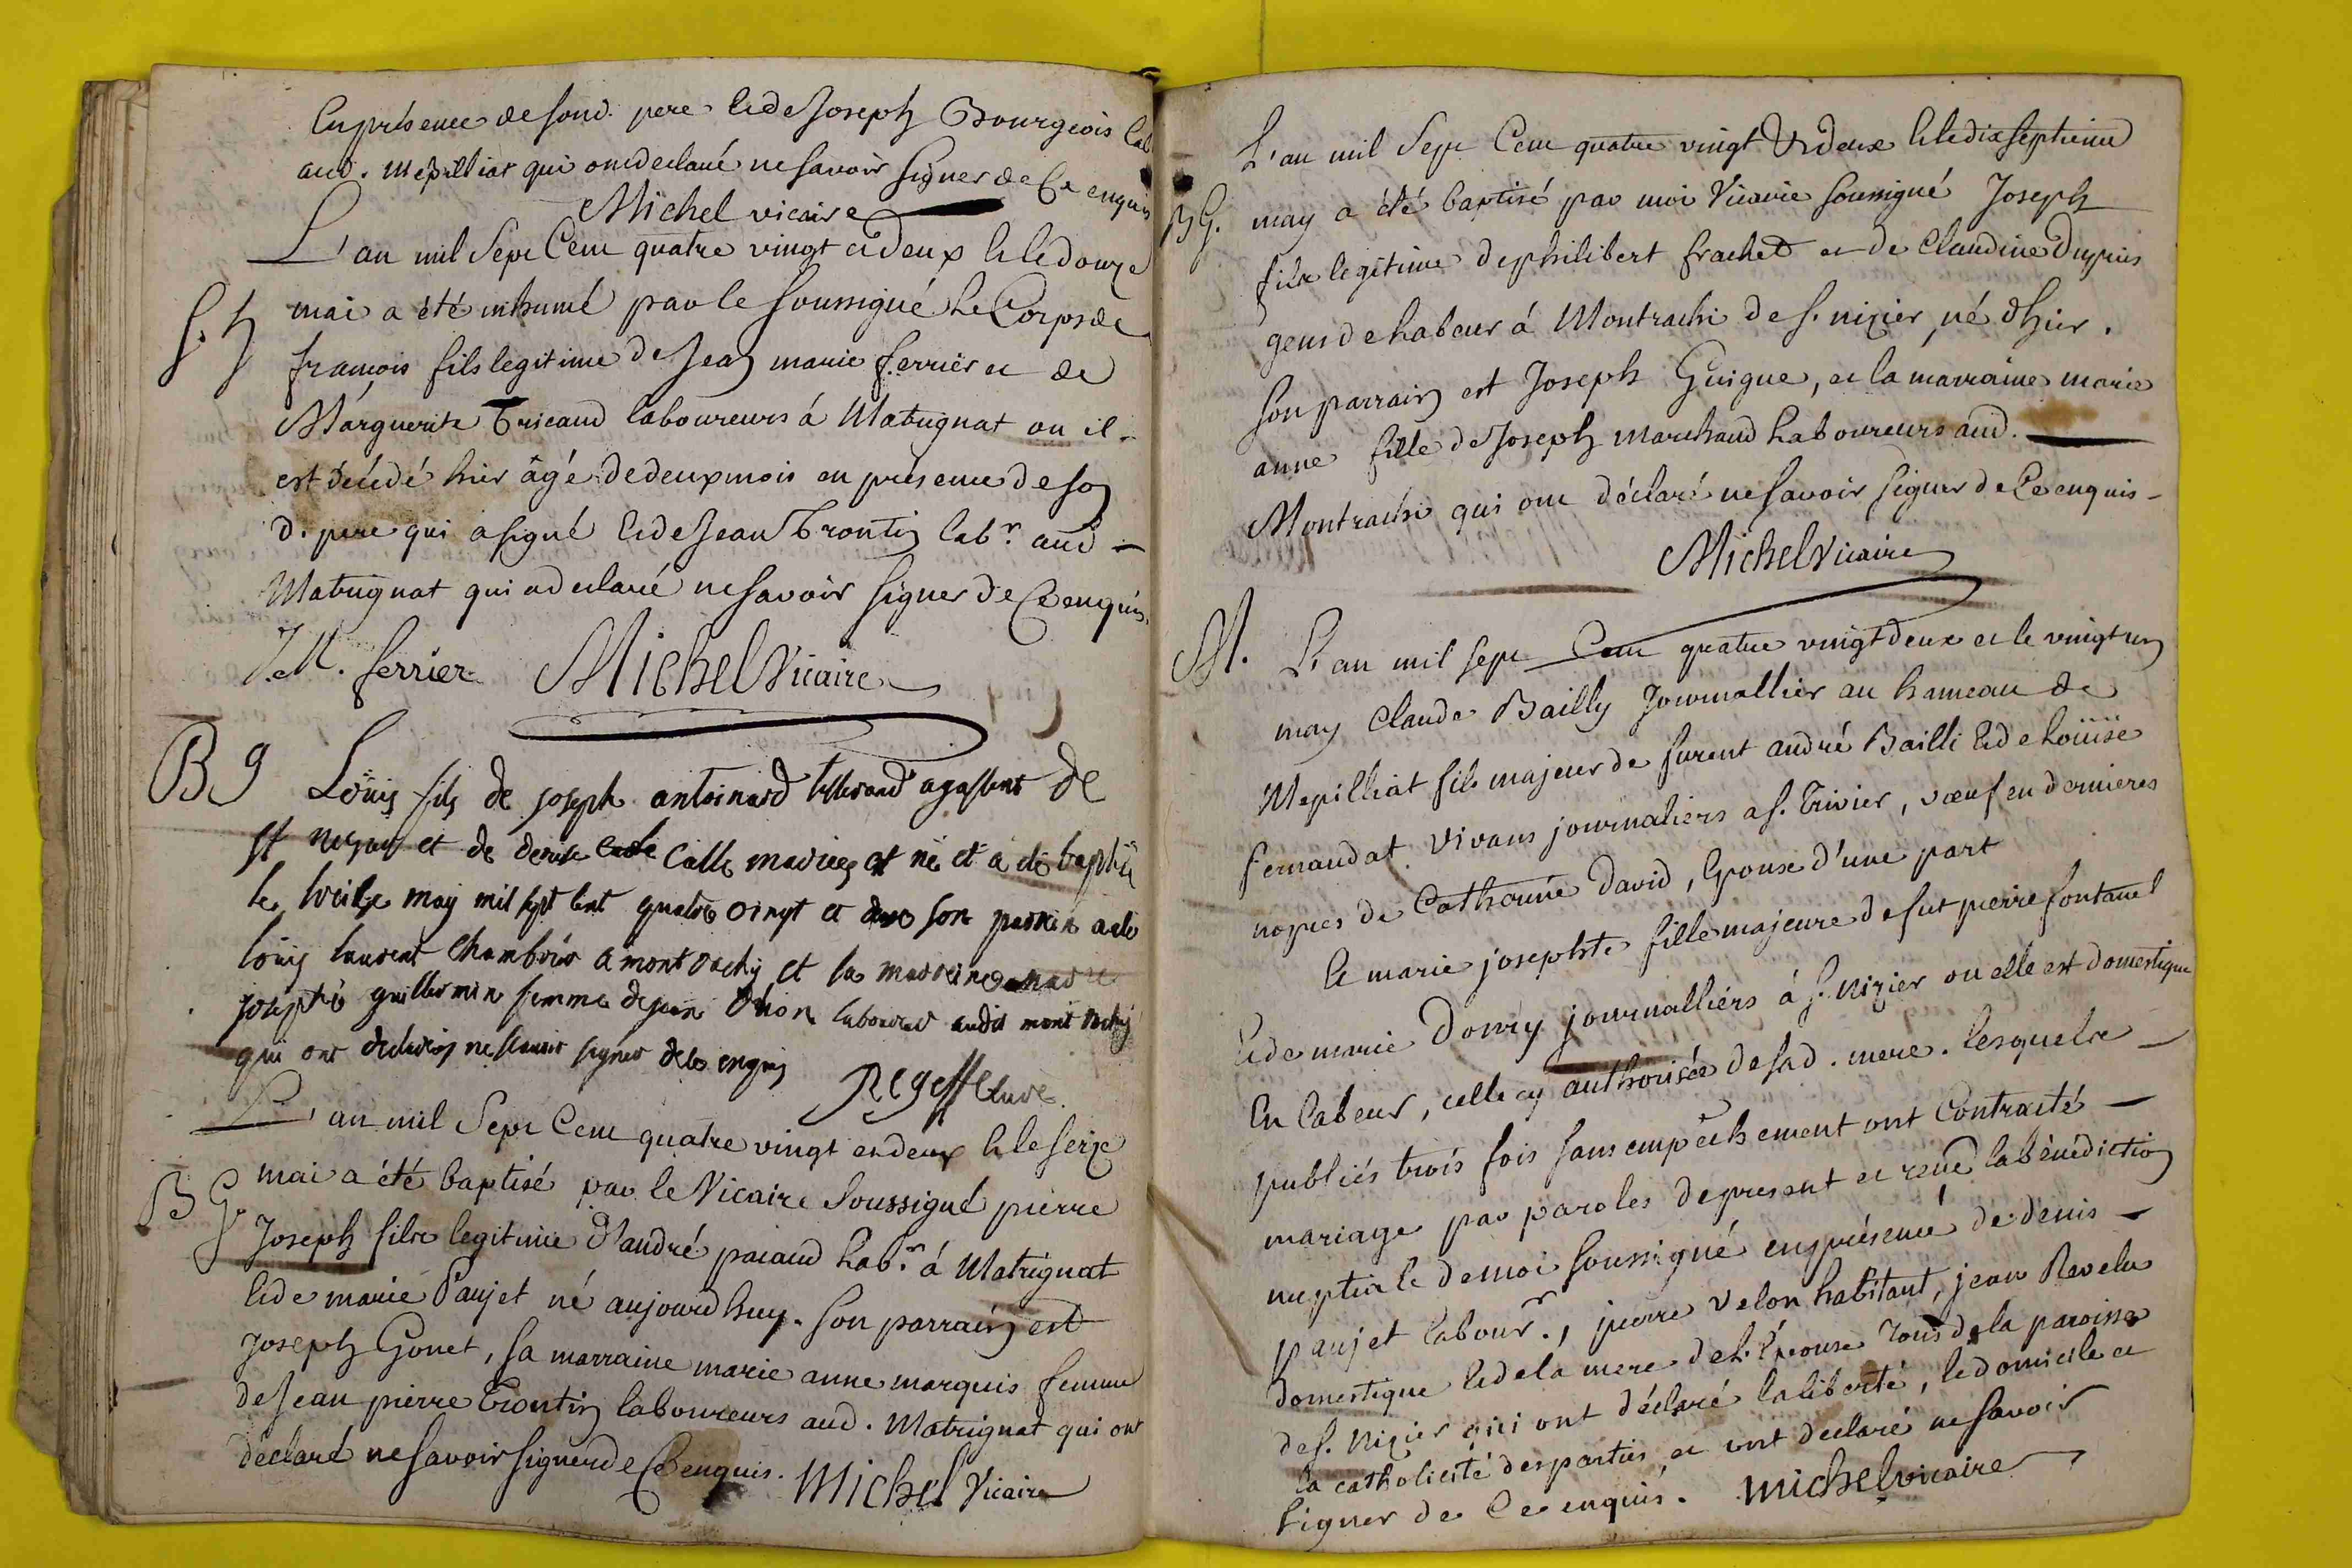 En présence de sond. pere et de Joseph Bourgeois lab
aud. Mépilliat qui ont declaré ne savoir signer de ce enquis
Michel vicaire
L'an mil sept cent quatre vingt et deux et le douze
S. h
mai a été inhumé par le soussigné le corps de
françois fils legitime de Jean marie ferrier et de
Marguerite Tricaud laboureurs á Matrignat ou il
est décédé hier âgé de deux mois en présence de son
d. pere qui a signé et de Jean Trontin labr. aud
Matrignat qui a declaré ne savoir signer de ce enquis.
J.M. ferrier Michel Vicaire
B g Loüis fils de joseph antoinard tisserand de
st et de denise calle mariés est né et a eté baptisé
le treize may mil sept cent quatre vingt et deux son parrain a eté
loüis laurent a montrachy et la marreine marie
josephe guillermin femme de jean laboureur audit mont rachy
qui ont declarés ne sçavoir signer de ce enquis
Regeffe curé
L'an mil sept cent quatre vingt et deux et le seize
B G
mai a été baptisé par le Vicaire soussigné pierre
Joseph fils legitime d'andré paiaud labr. á Matrignat
et de marie Paujet né aujourd huy. son parrain est
Joseph Gonet, sa marraine marie anne marquis femme
de Jean pierre Trontin laboureurs aud. Matrignat qui ont
déclaré ne savoir signer de ce enquis. Michel Vicaire
L'an mil sept cent quatre vingt et deux et le dix septieme
B G. may a été baptisé par moi Vicaire soussigné Joseph
fils legitime de philibert frachet et de Claudine Dupuis
gens de labeur á Montrachi de s. nizier, né d'hier.
son parrain est Joseph Guigue, et la marraine marie
anne fille de Joseph Marchand laboureurs aud.
Montrachi qui ont déclaré ne savoir signer de ce enquis
Michel Vicaire
M. L'an mil sept cent quatre vingt deux et le vingt un
may Claude Bailly Journallier au hameau de
Mepilliat fils majeur de furent andré Bailli et de Loüise
fernandat vivans journaliers a s. Trivier, vœuf en dernieres
nopces de Catherine David, epouse d'une part
Et marie josephte fille majeure de fut pierre fontanel
et de marie Donry journalliérs á s. Nizier ou elle est domestique
en labeur, celle cy authorisée de sad. mere. lesquels
publiés trois fois sans empêchement ont contracté
mariage par paroles de present et reçu la bénédiction
nuptiale de moi soussigné en présence de denis
paujet labourr., pierre velon habitant, jean Revelu
domestique et de la mere de l'épouse tous de la paroisse
de s. Nizier qui ont déclaré la liberté, le domicile et
la catholicité des parties et ont declaré ne savoir
signer de ce enquis. Michel vicaire